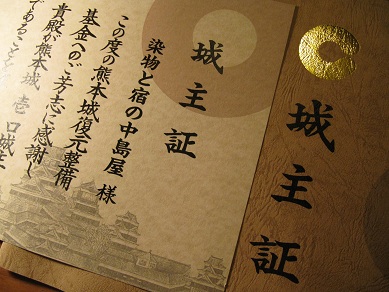 城主証
染物と宿の中島屋 様
この度の熊本城復元整備
基金へのご芳志に感謝し
貴殿が熊本城 壱口城主
であることを
城主証